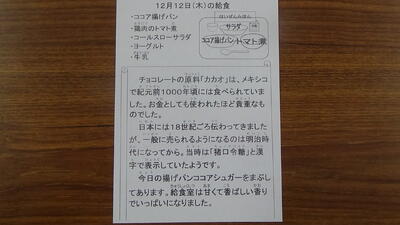 12月12日(木)の給食
・ココア揚げパン
・鶏肉のトマト煮
・コールスローサラダ
・ヨーグルト
・牛乳
はいぜんみほん
サラダ
ココア揚げパン
トマト煮
チョコレートの原料「カカオ」は、メキシコ
で紀元前1000年頃には食べられていまし
た。お金としても使われたほど貴重なも
のでした。
日本には18世紀ごろ伝わってきました
が、一般に売られるようになるのは明治時
代になってから。当時は「猪口令糖」と漢
字で表示していたようです。
今日の揚げパンココアシュガーをまぶし
てあります。給食室は甘くて香ばしい香り
でいっぱいになりました。